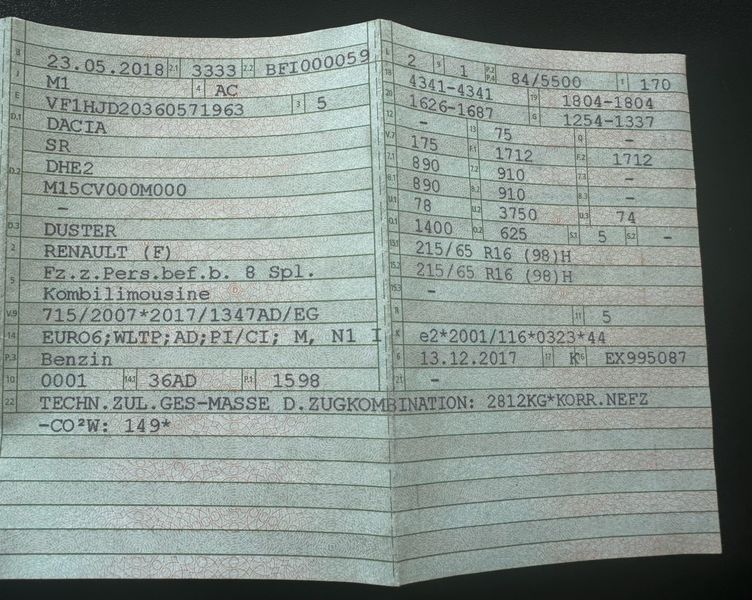 B 23.05.2018 2.1 3333 2.2 BFI000059
J M1 4 AC
E VF1HJD20360571963 3 5
D.1 DACIA
SR
D.2 DHE2
M15CV000M000
-
D.3 DUSTER
2 RENAULT (F)
5 Fz.z.Pers.bef.b. 8 Spl.
Kombilimousine
V.9 715/2007*2017/1347AD/EG
14 EURO6;WLTP;AD;PI/CI; M, N1 I
P.3 Benzin
10 0001 14.1 36AD P.1 1598
22 TECHN.ZUL.GES-MASSE D.ZUGKOMBINATION: 2812KG*KORR.NEFZ
-CO²W: 149*
L 2 9 1 P.2 P.4 84/5500 T 170
18 4341-4341 19 1804-1804
20 1626-1687 G 1254-1337
12 - 13 75 Q -
V.7 175 F.1 1712 F.2 1712
7.1 890 7.2 910 7.3 -
8.1 890 8.2 910 8.3 -
U.1 78 U.2 3750 U.3 74
O.1 1400 O.2 625 S.1 5 S.2 -
15.1 215/65 R16 (98)H
15.2 215/65 R16 (98)H
15.3 -
R 11 5
K e2*2001/116*0323*44
6 13.12.2017 17 K 16 EX995087
21 -